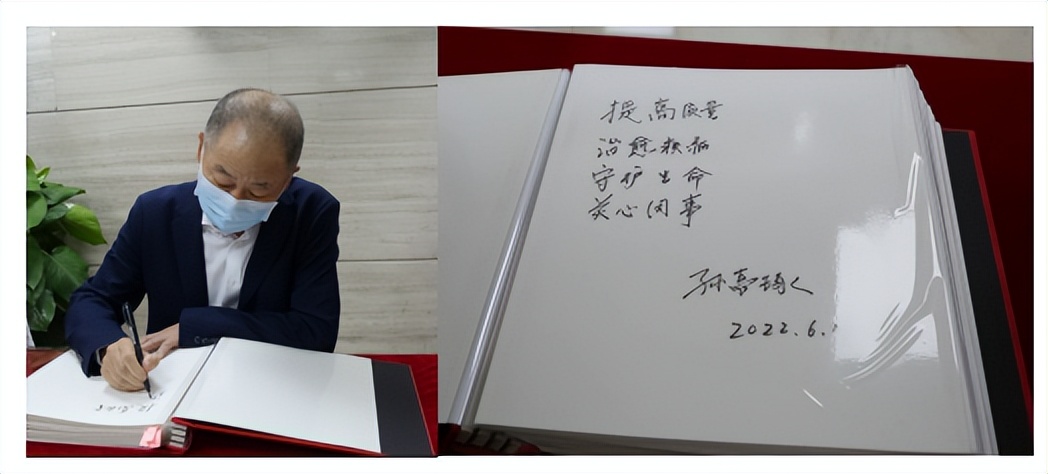 提高质量
治愈疾病
守护生命
关心同事
孙嘉
2022.6.